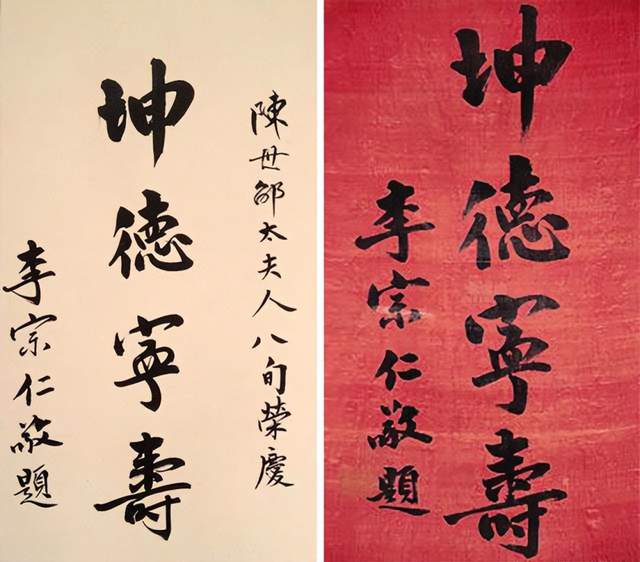 陳母邵太夫人八旬榮慶
坤德寧壽
李宗仁敬題
坤德寧壽
李宗仁敬題